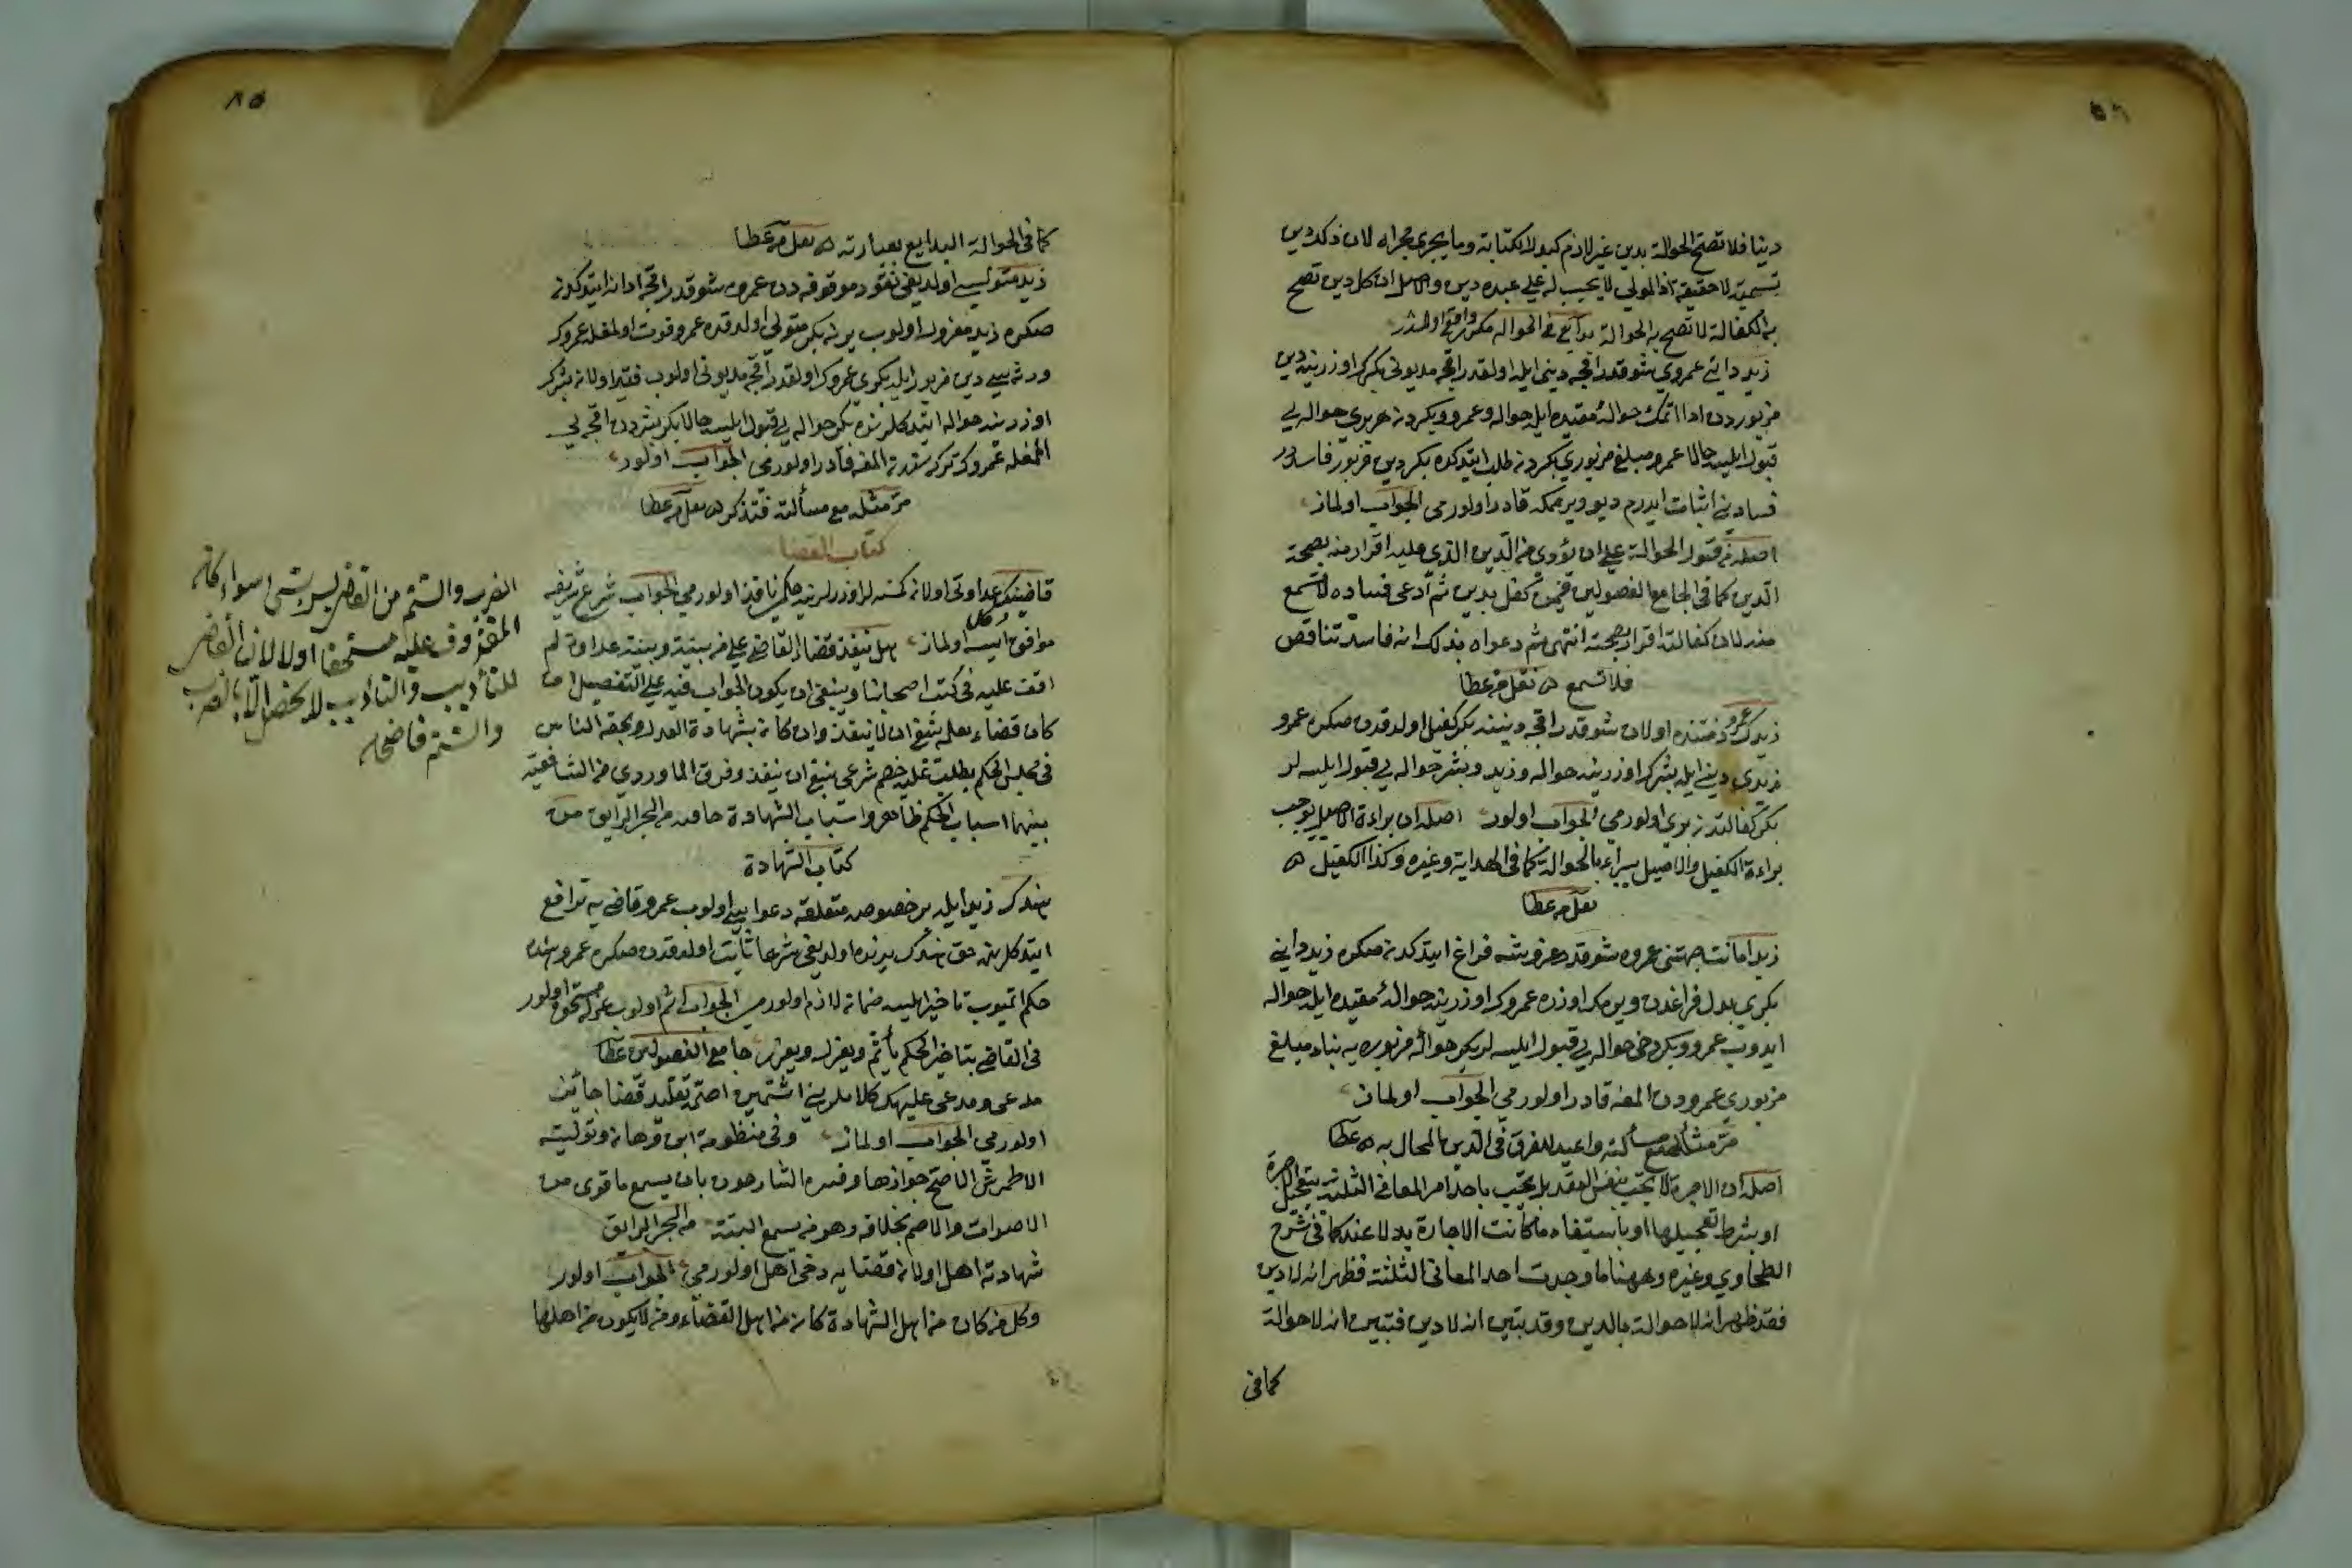 دينا فلا تصح الحوالة بدين غير لازم كبدل الكتابة وما يجري مجراه لان ذلك دين
تسمية لا حقيقة اذ المولى لا يجب له على عبده دين والاصل ان كل دين تصح
به الكفالة لا تصح به الحوالة بدايع في الحواله
زيد داينى عمروي شو قدر اقچه دينى ايله اولقدر اقچه مديونى بكرك اوزرينه دين
مزبوردن ادا اتمك حوالۀ مقيده ايله حواله وعمرو وبكر دخى هر برى حواله يى
قبول ايليسه حالا عمرو مبلغ مزبورى بكردن طلب ايتدكده بكر دين مزبور فاسددر
فسادينى اثبات ايدرم ديو ويرممكه قادر اولورمى الجواب اولماز
اصله من قبول الحوالة على ان يؤدي من الدين الذي عليه اقرار منه بصحة
الدين كما في الجامع الفصولين فمن كفل بدين ثم ادعى فساده لا تسمع
منه لان كفالته اقرار بصحته انتهى ثم دعواه بذلك انه فاسد تناقض
فلا تسمع ه نقل من عطا
زيدك عمرو ذمتنده اولان شو قدر اقچه دينينه بكر كفيل اولدقدن صكره عمرو
زيدى دينى ايله بشرك اوزرينه حواله وزيد وبشر حواله يى قبول ايليسه لر
بكر كفالتدن برى اولورمى الجواب اولور اصله ان براءة الاصيل يوجب
براءة الكفيل والاصيل يبراء بالحوالة كما في الهداية وغيره وكذا الكفيل ه
نقل من عطا
زيد امانت جهتنى عمروه شو قدر غروشه فراغ ايتدكدن صكره زيد داينى
بكرى بدل فراغدن ويرمك اوزره عمروك اوزرينه حوالۀ مقيده ايله حواله
ايدوب عمرو وبكر دخى حواله يى قبول ايليسه لر بكر حوالۀ مزبوره يه بناء مبلغ
مزبورى عمرودن المغه قادر اولورمى الجواب اولماز
مر مثله مع مسألته واعيد للفرق في الدين المحال به ه عطا
اصله ان الاجرة لا تجب بنفس العقد بل تجب باحد امر المعاني الثلثة بتعجيل الاجرة
او بشرط تعجيلها او باستيفاء ما كانت الاجارة بدلا عنه كما في شرح
الطحاوي وغيره وههنا ما وجدت احد المعاني الثلثة فظهر انه لا دين
فقد ظهر انه لا حوالة بالدين وقد بتبين انه لا دين فتبين انه لا حوالة
كما في
٨٥
كما في الحوالة البدايع بعبارته ه نقل من عطا
زيد متوليسى اولديغى نقود موقوفه دن عمروه شو قدر اقچه ادانه ايتدكدن
صكره زيد معزول اولوب يرينه بكر متولى اولدقده عمرو فوت اولمغله عمروك
ورثه سى دين مزبور ايله بكرى عمروك اولقدر اقچه مديونى اولوب فقير اولان بشرك
اوزرينه حواله ايتدكلرنده بكر حواله يى قبول ايليسه حالا بكر بشردن اقچه يى
المغله عمروك تركه سندن المغه قادر اولورمى الجواب اولور
مر مثله مع مسألته فتذكر ه نقل من عطا
كتاب القضا
قاضينك عداوتى اولان كمسنه لر اوزرلرينه حكمى نافذ اولورمى الجواب شرع شريفه
موافق دكل ايسه اولماز هل ينفذ قضاء القاضي على من بينه وبينه عداوة لم
اقف عليه في كتب اصحابنا وينبغي ان يكون الجواب فيه على التفصيل ان
كان قضاءه بعلمه ينبغي ان لا ينفذ وان كان بشهادة العدل وبحقه الناس
في مجلس الحكم بطلب عليه خصم شرعي ينبغي ان ينفذ وفرق الماوردي من الشافعية
بينهما اسباب الحكم ظاهر واسباب الشهادة من البحر الرايق
كتاب الشهادة
هندك زيد ايله بر خصوصه متعلقه دعوايى اولوب عمرو قاضى يه ترافع
ايتدكلرينه حق هندك يدنده اولديغى شرعا ثابت اولدقدن صكره عمرو هنده
حكم اتميوب تاخير ايليسه ضمان لازم اولورمى الجواب اثم اولوب عزله مستحق اولور
في القاضي بتاخير الحكم يأثم ويعزل ويعزر جامع الفصولين عطا
مدعى ومدعى عليهك كلاملرينى اشتمين اصمه تقليد قضا جائز
اولورمى الجواب اولماز وفي منظومة ابن وهبان وتوليت
الاطرش الاصح جوازها وفسره الشارحون بان يسمع ما قوى من
الاصوات والاصم بخلافه وهو من يسمع البتة من البحر الرايق
شهادته اهل اولان قضايه دخى اهل اولورمى الجواب اولور
وكل من كان من اهل الشهادة كان من اهل القضاء ومن لا يكون من اهلها
الضرب والشتم من القاضي ليس بشئ سواء كان
المقذوف عليه مستحقا او لا لان القاضي
للتأديب والتأديب لا يحصل الا بالضرب
والشتم قاضيخان